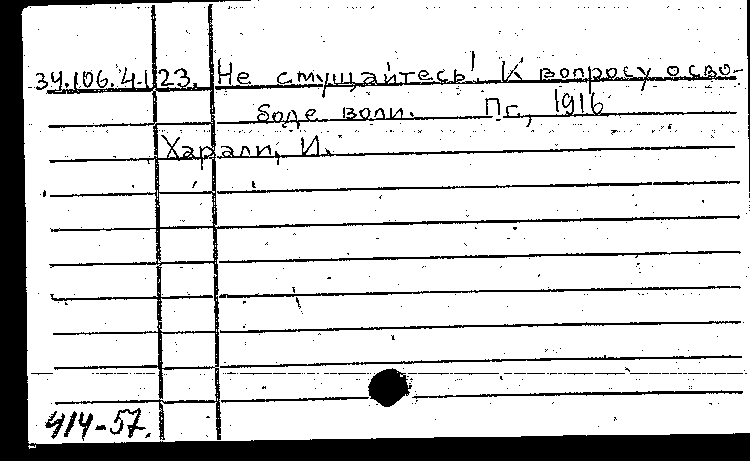 34.106.4.123. Не смущайтесь! К вопросу о сво-
боде воли. Пг., 1916
Харали, И.
414-57.